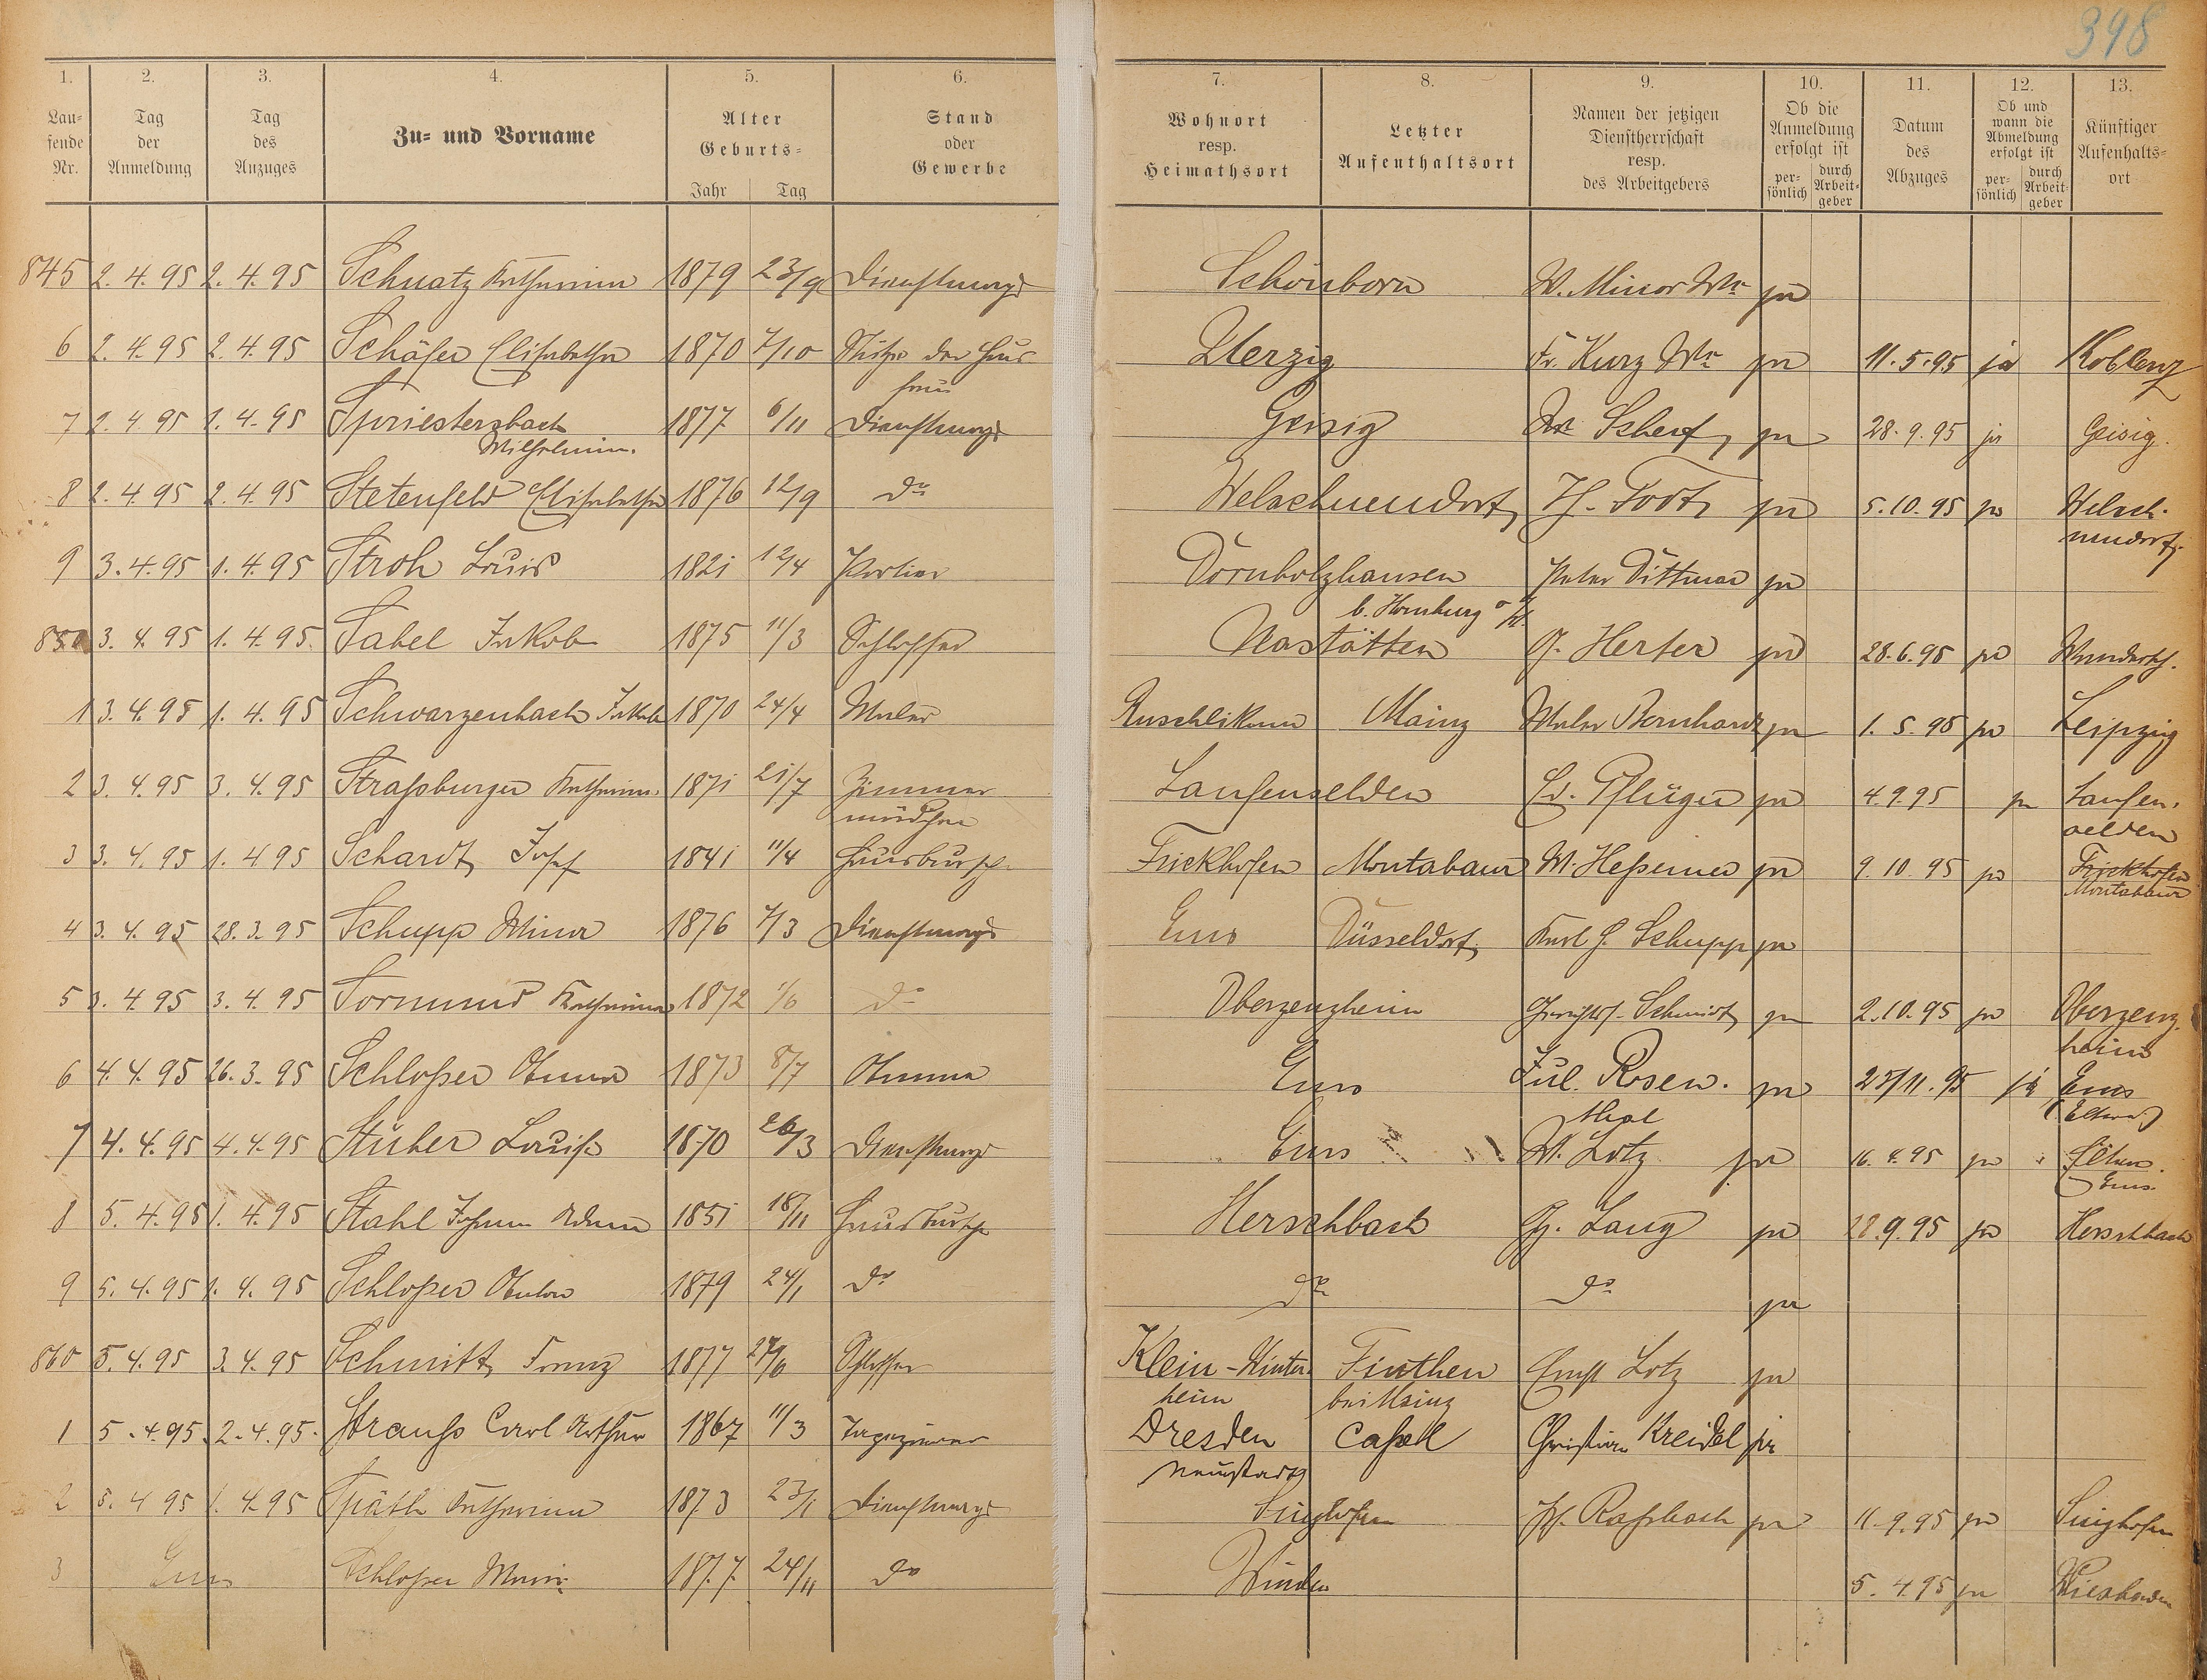 398
1. 2. 3. 4. 5. 6. 7. 8. 9. 10. 11. 12. 13.
Laufende Nr. Tag der Anmeldung Tag des Anzuges Zu- und Vorname Alter Geburts- Jahr Tag Stand oder Gewerbe Wohnort resp. Heimathsort Letzter Aufenthaltsort Namen der jetzigen Dienstherrschaft resp. des Arbeitgebers Ob die Anmeldung erfolgt ist persönlich durch Arbeitgeber Datum des Abzuges Ob und wann die Abmeldung erfolgt ist persönlich durch Arbeitgeber Künftiger Aufenthaltsort
845 2.4.95 2.4.95 Schnatz Katharina 1879 23/9 Dienstmagd Schönborn W. Minor Ww ja
6 2.4.95 2.4.95 Schäfer Elisabetha 1870 7/10 Stütze der Hausfrau Uerzig Fr. Kurz Ww ja 11.5.95 ja Koblenz
7 2.4.95 1.4.95 Spriestersbach Wilhelmine 1877 6/11 Dienstmagd Geisig Scherf ja 28.9.95 ja Geisig
8 2.4.95 2.4.95 Stetenfeld Elisabetha 1876 12/9 do Welschneudorf ja 5.10.95 ja Welschneudorf
9 3.4.95 1.4.95 Stroh Louis 1821 12/4 Portier Dornholzhausen b. Homburg v/H. Peter Dittmar ja
850 3.4.95 1.4.95 Sabel Jakob 1875 11/3 Schlosser Nastätten G. Herter ja 28.6.95 ja
1 3.4.95 1.4.95 Schwarzenbach Jakob 1870 24/4 Maler Ruschlikon Mainz Maler Bernhardt ja 1.5.95 ja Leipzig
2 3.4.95 3.4.95 Straßburger Katharina 1871 21/7 Zimmermädchen Laufenselden Ed. Pflüger ja 4.9.95 ja Laufenselden
3 3.4.95 1.4.95 Schardt Josef 1841 11/4 Hausbursch Frickhofen Montabaur W. Heßemer ja 9.10.95 ja Frickhofen Montabaur
4 3.4.95 28.3.95 Schupp Mina 1876 7/3 Dienstmagd Ems Düsseldorf Karl H. Schupp ja
5 3.4.95 3.4.95 Katharina 1872 1/6 do Oberzeuzheim Schmidt ja 2.10.95 ja Oberzeuzheim
6 4.4.95 26.3.95 Schloßer Anna 1873 8/7 Amme Ems Jul. Rosenthal ja 25/11.95 ja Ems (Eltern)
7 4.4.95 4.4.95 Stüber Louise 1870 26/3 Dienstmagd Ems W. Lotz ja 16.4.95 ja Eltern Ems
8 5.4.95 1.4.95 Stahl Johann Adam 1851 18/11 Hausbursche Herschbach Gg. Lang ja 28.9.95 ja Herschbach
9 5.4.95 1.4.95 Schloßer Anton 1879 24/1 do do do ja
860 5.4.95 3.4.95 Schmitt Franz 1877 27/6 Schlosser Klein-Winternheim Finthen bei Mainz Ernst Lotz ja
1 5.4.95. 2.4.95. Strauß Carl Arthur 1867 11/3 Tapezierer Dresden Neustadt Caßell Christian Kreidel ja
2 5.4.95 1.4.95 Späth Katharina 1873 23/1 Dienstmagd Singhofen Roßbach ja 11.9.95 ja Singhofen
3 Ems Schloßer Marie 1877 24/11 do Winden 5.4.95 ja Wiesbaden